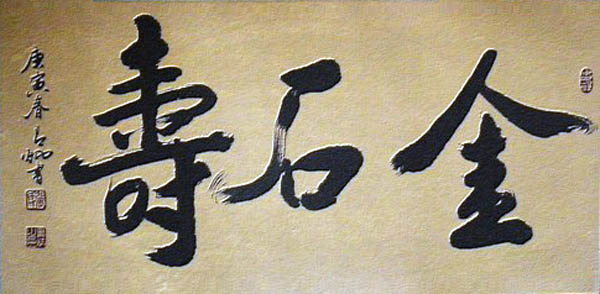 金石壽
庚寅春